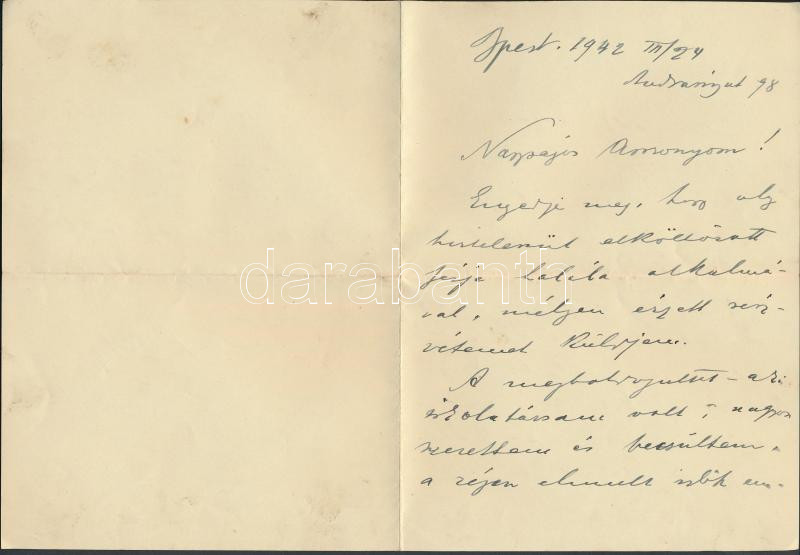 Bpest. 1942 III/24
Andrássy ut 98
Nagyságos Asszonyom!
Engedje meg, hogy oly
hirtelenül elköltözött
férje halála alkalmá-
val, mélyen érzett rész-
vétemet küldjem.
A megboldogultat - aki
iskolatársam volt, nagyon
szerettem és becsültem.
a régen elmult idők em-
darabanth